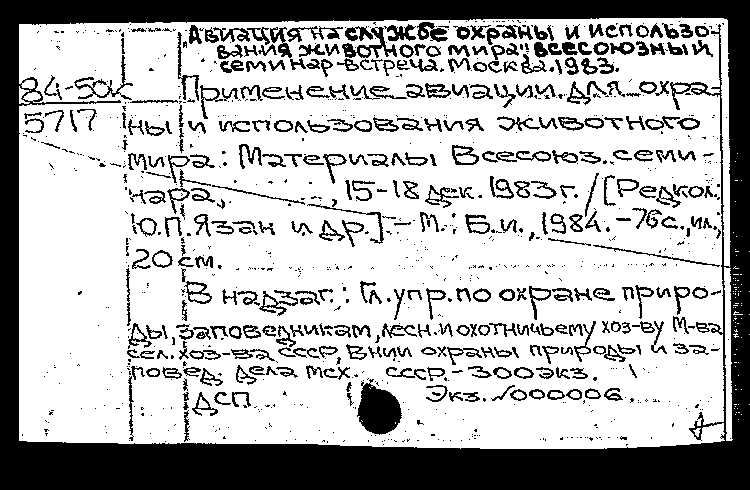 „Авиация на службе охраны и использо-
вания животного мира", всесоюзный
семинар-встреча. Москва. 1983.
84-50к Применение авиации для охра-
5717 ны и использования животного
мира: Материалы Всесоюз. семи-
нара, , 15-18 дек. 1983 г. / [Редкол.:
Ю.П. Язан и др.]. - М.: Б.и., 1984. - 76 с., ил.;
20 см.
В надзаг.: Гл. упр. по охране приро-
ды, заповедникам, лесн. и охотничьему хоз-ву М-ва
сел. хоз-ва СССР, ВНИИ охраны природы и за-
повед. дела МСХ. СССР. - 300 экз.
ДСП Экз. №000006.